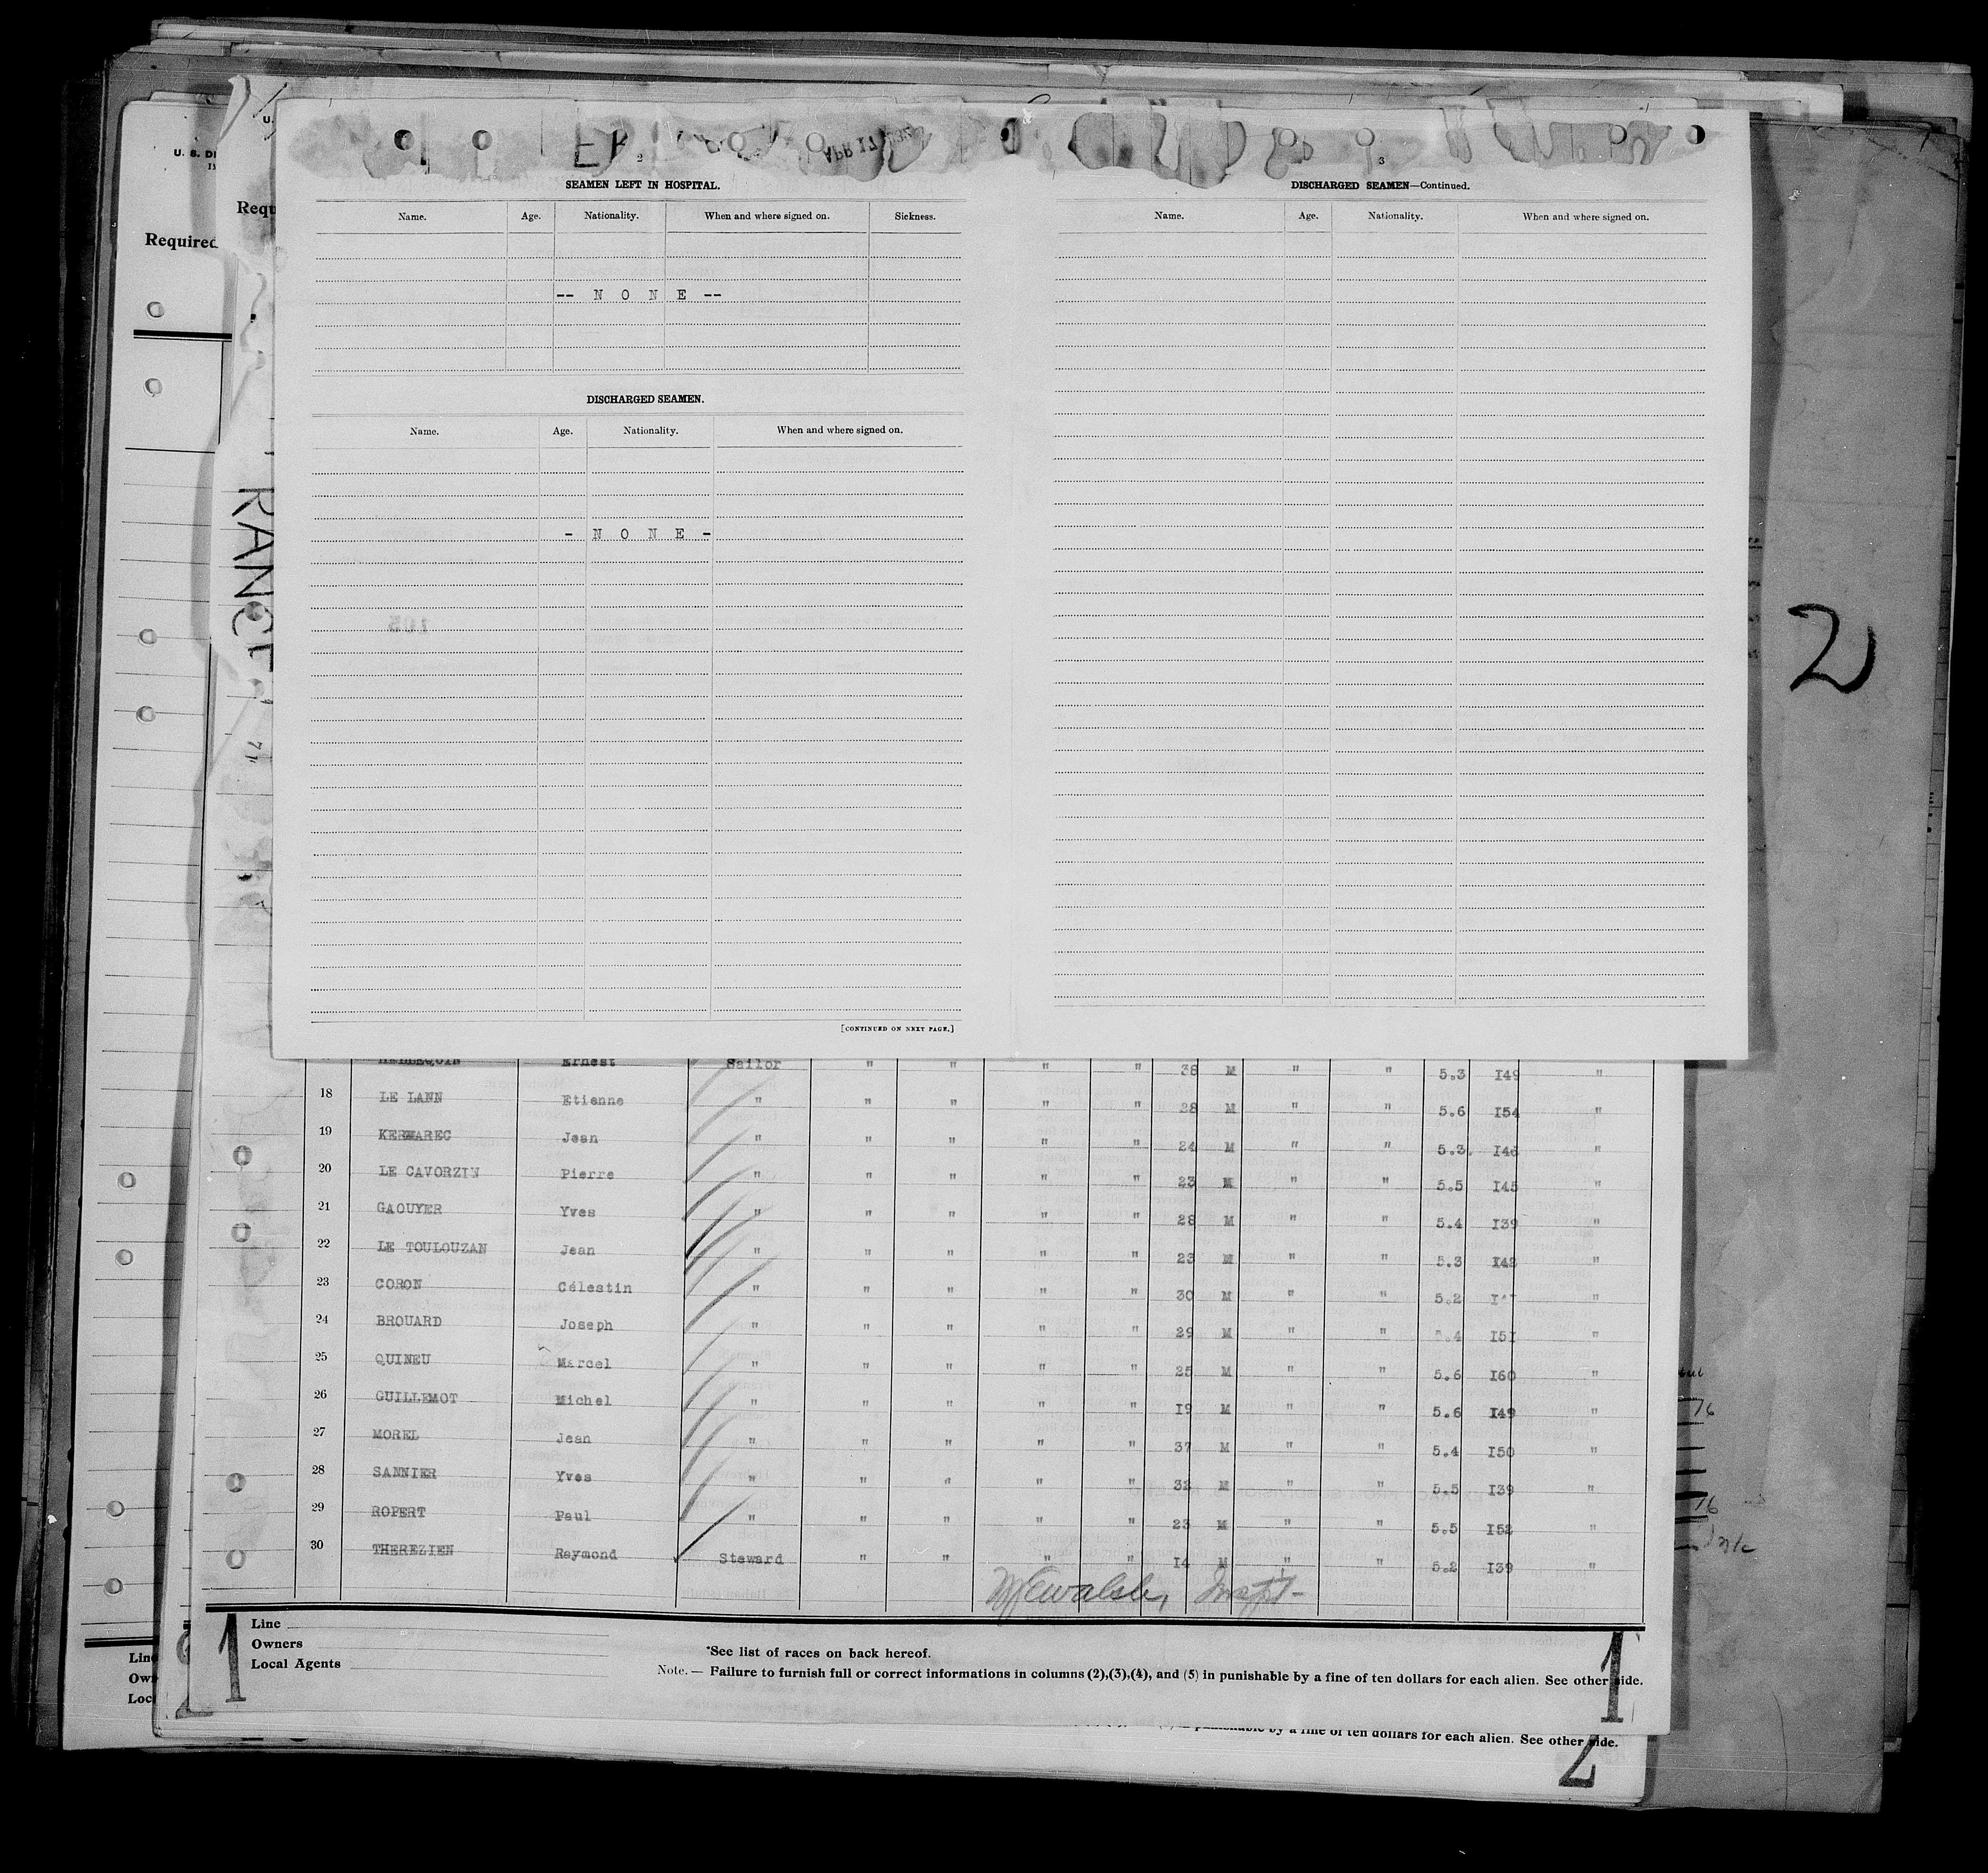 U. S. D
Requ
Required
RANCE
APR 17
2
3
SEAMEN LEFT IN HOSPITAL.
Name. Age. Nationality. When and where signed on. Sickness.
-- N O N E --
DISCHARGED SEAMEN.
Name. Age. Nationality. When and where signed on.
- N O N E -
[CONTINUED ON NEXT PAGE.]
DISCHARGED SEAMEN—Continued.
Name. Age. Nationality. When and where signed on.
2
HELLEQUIN Ernest Sailor " " " " 38 M " " 5.3 I49 "
18 LE LANN Etienne " " " " " 28 M " " 5.6 I54 "
19 KERMAREC Jean " " " " " 24 M " " 5.3. I46 "
20 LE CAVORZIN Pierre " " " " " 23 M " " 5.5 I45 "
21 GAOUYER Yves " " " " " 28 M " " 5.4 I39 "
22 LE TOULOUZAN Jean " " " " " 23 M " " 5.3 "
23 CORON Célestin " " " " " 30 M " " 5.2 "
24 BROUARD Joseph " " " " " 29 M " " I51 "
25 QUINEU Marcel " " " " " 25 M " " 5.6 I60 "
26 GUILLEMOT Michel " " " " " I9 M " " 5.6 I49 "
27 MOREL Jean " " " " " 37 M " " 5.4 I50 "
28 SANNIER Yves " " " " " 32 M " " 5.5 I39 "
29 ROPERT Paul " " " " " 23 M " " 5.5 I52 "
30 THEREZIEN Raymond Steward " " " " I4 M " " 5.2 I39 "
Line
Owners
Local Agents
*See list of races on back hereof.
Note. — Failure to furnish full or correct informations in columns (2),(3),(4), and (5) in punishable by a fine of ten dollars for each alien. See other side.
1
1
Line
Own
Loc
punishable by a fine of ten dollars for each alien. See other side.
2